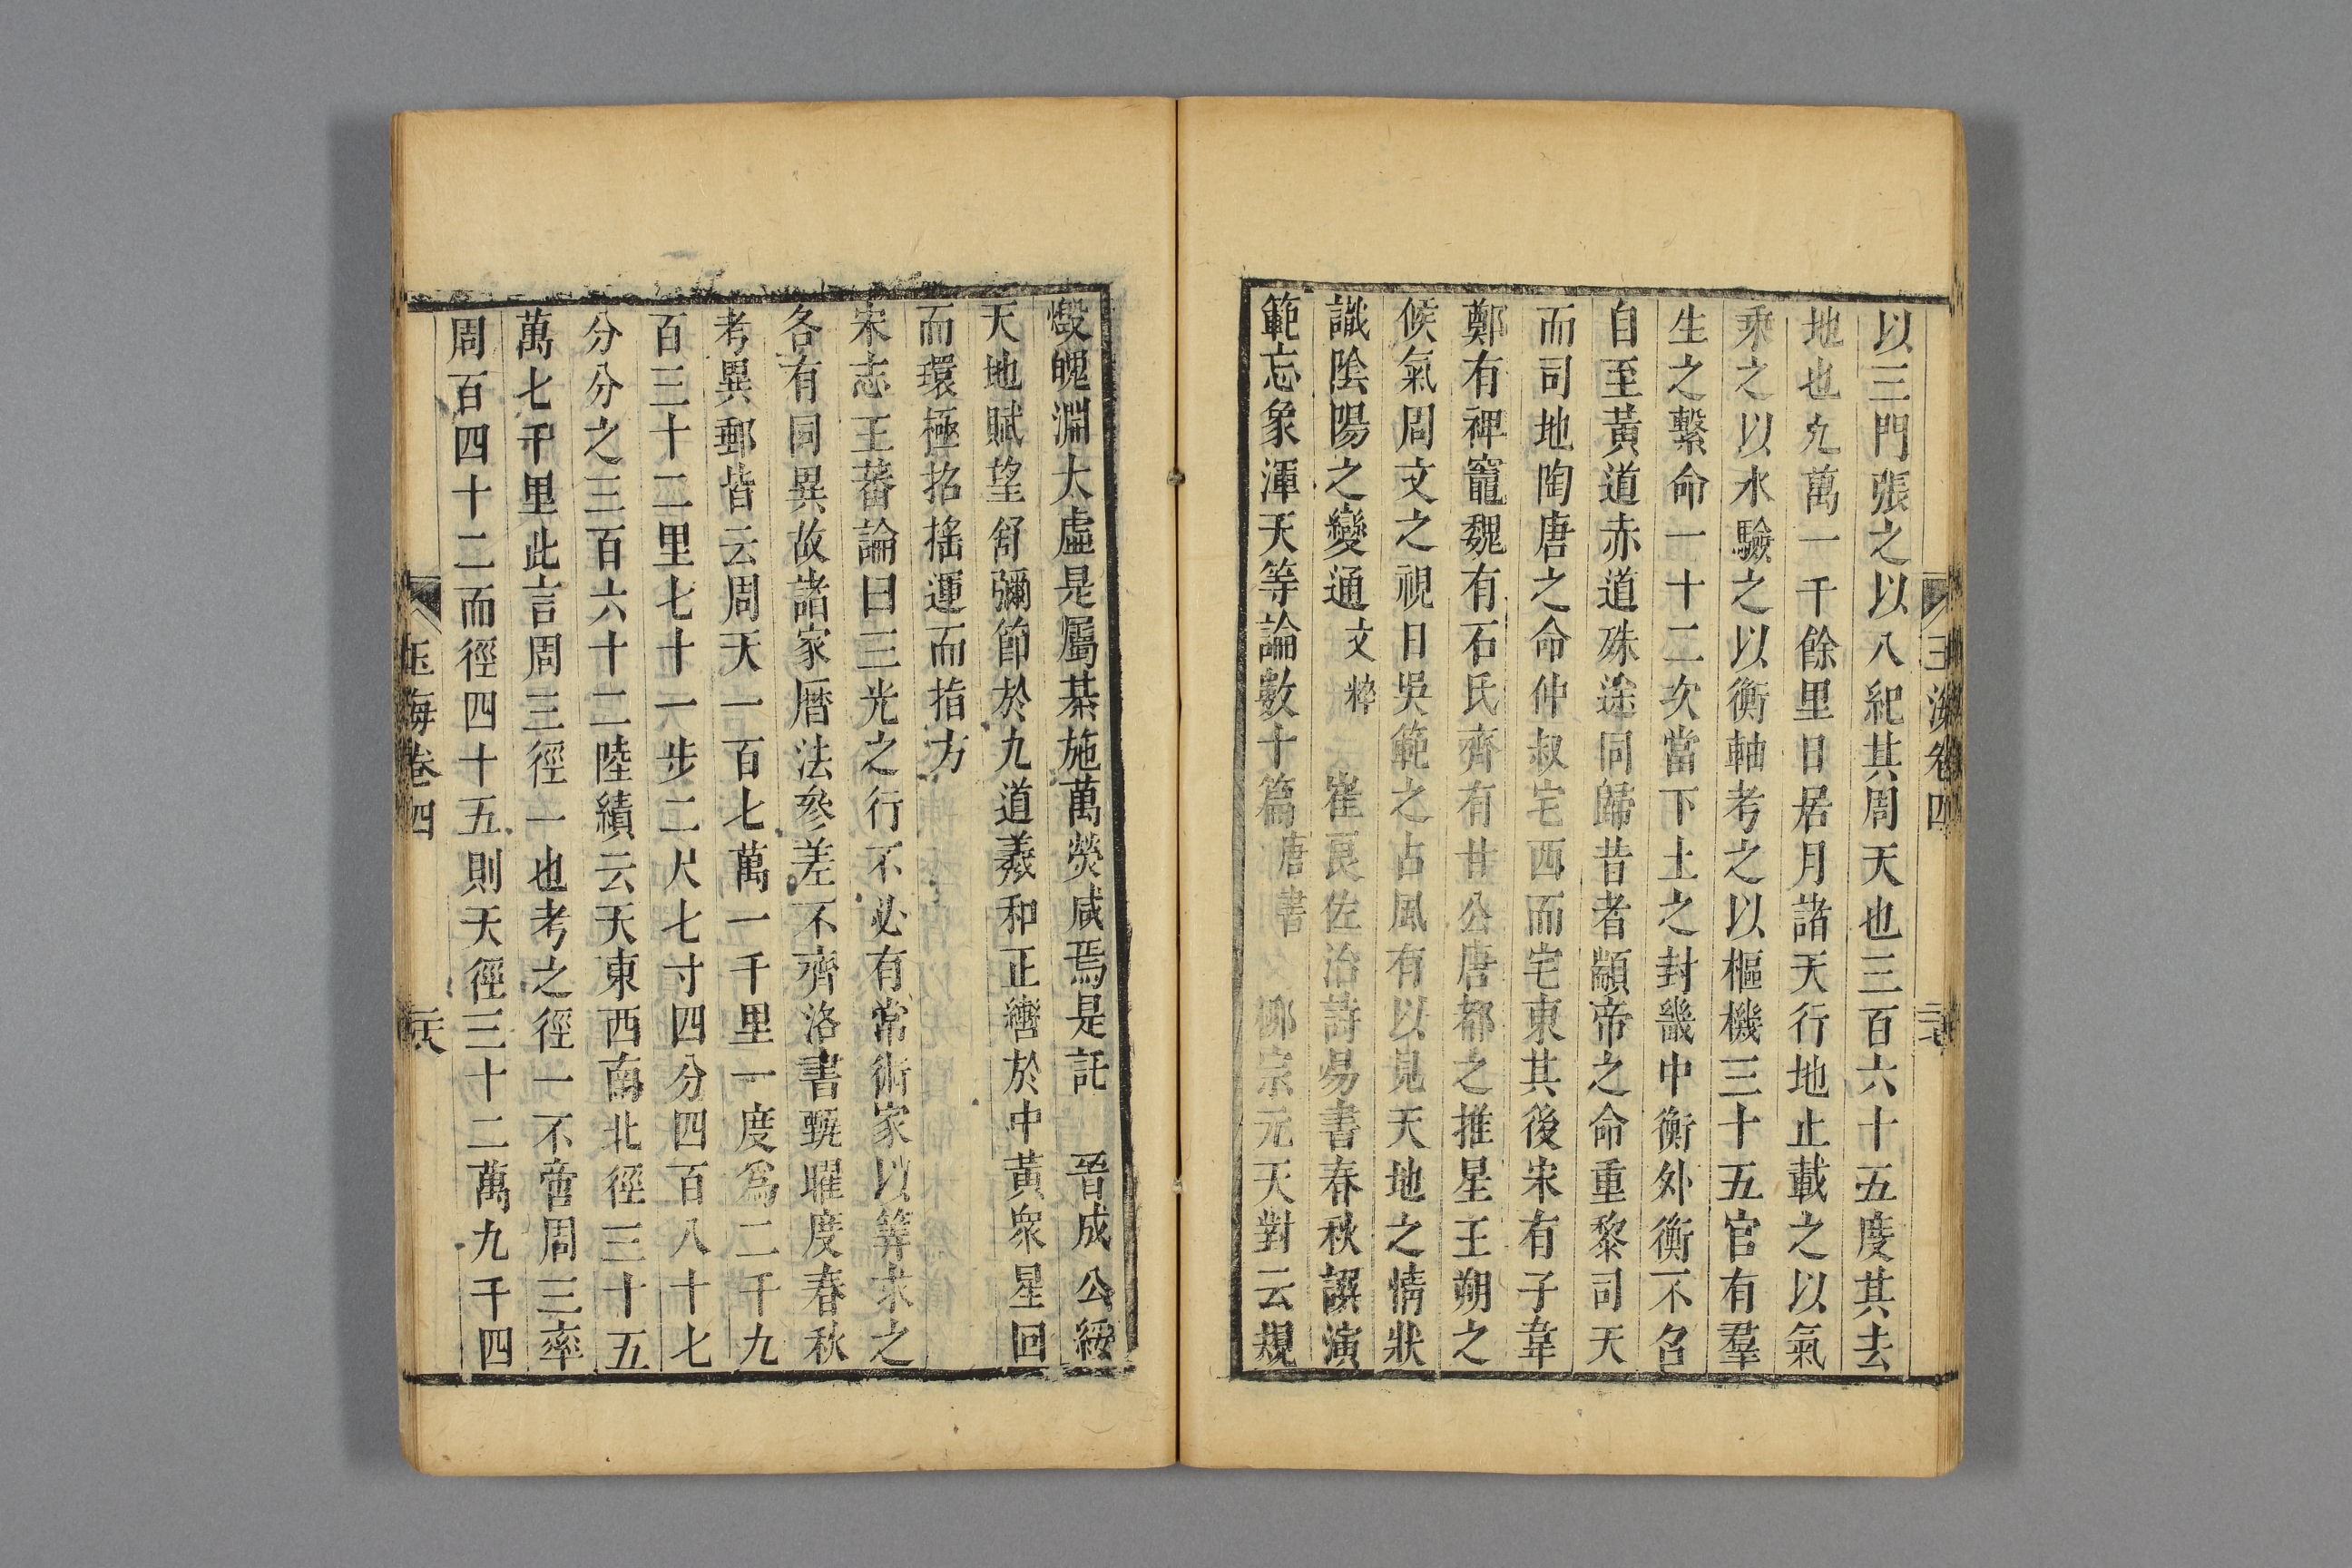 玉海卷四
以三門張之以八紀其周天也三百六十五度其去
地也九萬一千餘里日居月諸天行地止載之以氣
乘之以水驗之以衡軸考之以樞機三十五官有羣
生之繫命一十二次當下土之封畿中衡外衡不召
自至黃道赤道殊途同歸昔者顓帝之命重黎司天
而司地陶唐之命仲叔宅西而宅東其後宋有子韋
鄭有裨竈魏有石氏齊有甘公唐都之推星王朔之
候氣周文之視日吳範之占風有以見天地之情狀
識陰陽之變通 文粹 崔良佐治詩易書春秋譔演
範忘象渾天等論數十篇 唐書 柳宗元天對云規
燬魄淵太虛是屬棊施萬熒咸焉是託 晉成公綏
天地賦望舒彌節於九道羲和正轡於中黃衆星回
而環極招搖運而指方
宋志王蕃論曰三光之行不必有常術家以筭求之
各有同異故諸家曆法參差不齊洛書甄曜度春秋
考異郵皆云周天一百七萬一千里一度爲二千九
百三十二里七十一步二尺七寸四分四百八十七
分分之三百六十二陸績云天東西南北徑三十五
萬七千里此言周三徑一也考之徑一不啻周三率
周百四十二而徑四十五則天徑三十二萬九千四
玉海卷四 二十八